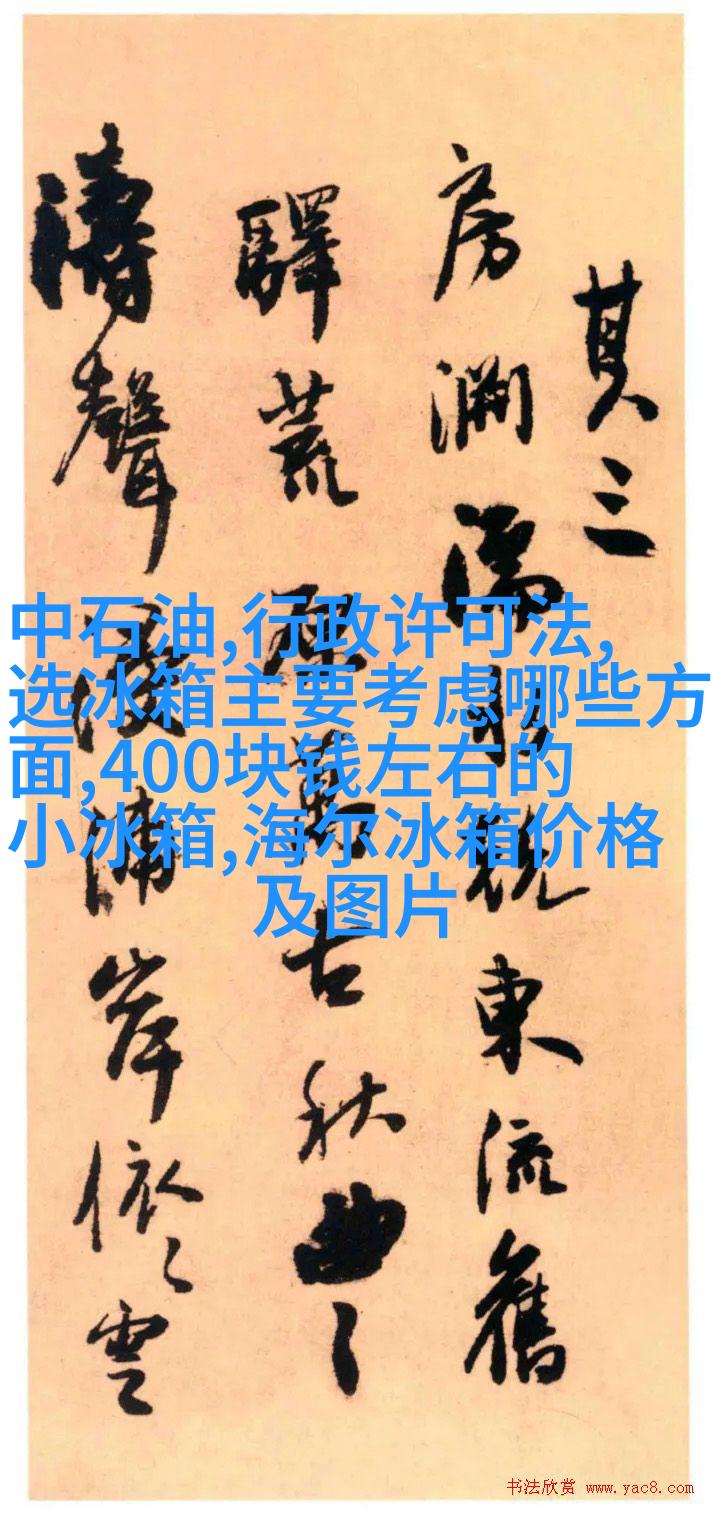 其三
房渊隔眺東流舊
驛荒 古秋曲〻
濤聲 浦岸依〻雲
中石油,行政许可法,
选冰箱主要考虑哪些方
面,400块钱左右的
小冰箱,海尔冰箱价格
及图片
书法欣赏 www.yac8.com